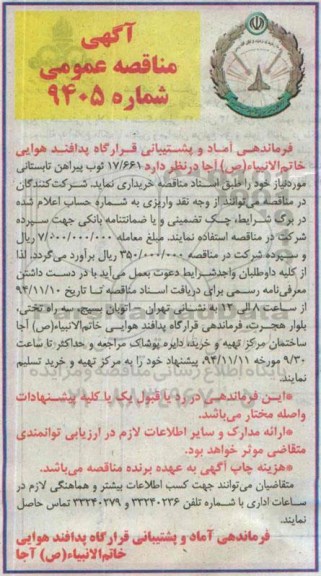 آگهی
مناقصه عمومی
شماره ۹۴۰۵
فرماندهی آماد و پشتیبانی قرارگاه پدافند هوایی
خاتم‌الانبیاء(ص) آجا درنظر دارد ۱۷/۶۶۱ ثوب پیراهن تابستانی
موردنیاز خود را طبق اسناد مناقصه خریداری نماید. شرکت‌کنندگان
در مناقصه می‌توانند از وجه نقد واریزی به شماره حساب اعلام شده
در برگ شرایط، چک تضمینی و یا ضمانتنامه بانکی جهت سپرده
شرکت در مناقصه استفاده نمایند. مبلغ معامله ۷/۰۰۰/۰۰۰/۰۰۰ ریال
و سپرده شرکت در مناقصه ۳۵۰/۰۰۰/۰۰۰ ریال برآورد می‌گردد. لذا
از کلیه داوطلبان واجدشرایط دعوت بعمل می‌آید با در دست داشتن
معرفی‌نامه رسمی برای دریافت اسناد مناقصه تا تاریخ ۹۴/۱۱/۱۰
از ساعت ۸ الی ۱۲ به نشانی تهران - اتوبان بسیج، سه راه تختی،
بلوار هجرت، فرماندهی قرارگاه پدافند هوایی خاتم‌الانبیاء(ص) آجا
ساختمان مرکز تهیه و خرید، دایره پوشاک مراجعه و حداکثر تا ساعت
۹/۳۰ مورخه ۹۴/۱۱/۱۱، پیشنهاد خود را به مرکز تهیه و خرید تسلیم
نمایند.
*این فرماندهی در رد یا قبول یک یا کلیه پیشنهادات
واصله مختار می‌باشد.
*ارائه مدارک و سایر اطلاعات لازم در ارزیابی توانمندی
متقاضی موثر خواهد بود.
*هزینه چاپ آگهی به عهده برنده مناقصه می‌باشد.
متقاضیان می‌توانند جهت کسب اطلاعات بیشتر و هماهنگی لازم در
ساعات اداری با شماره تلفن ۳۳۲۴۰۲۳۶ و ۳۳۲۴۰۲۷۹ تماس حاصل
نمایند.
فرماندهی آماد و پشتیبانی قرارگاه پدافند هوایی
خاتم‌الانبیاء(ص) آجا